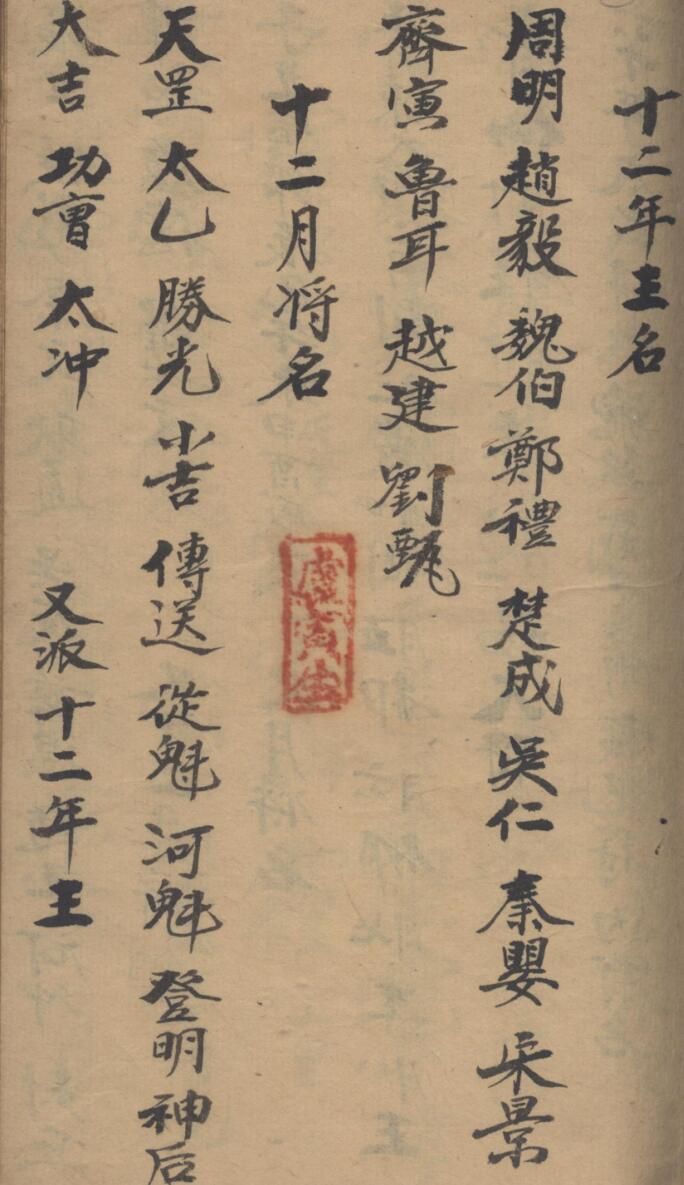 十二年主名
周明 趙毅 魏伯 鄭禮 楚成 吳仁 秦嬰 宋景
齊寅 魯耳 越建 劉甄
十二月将名
天罡 太乙 勝光 小吉 傳送 從魁 河魁 登明 神后
大吉 功曹 太冲 又派十二年主